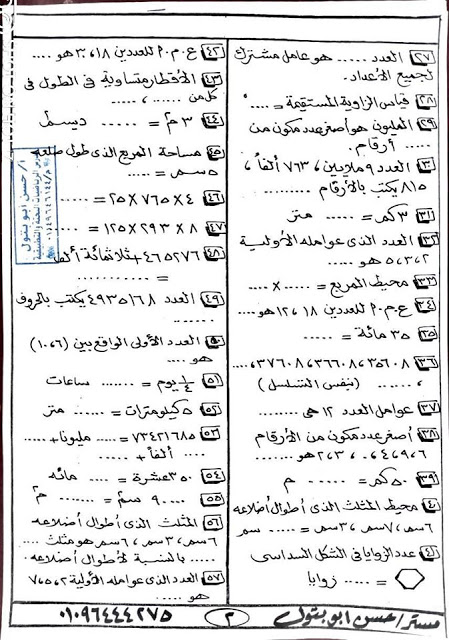 ٢٧ العدد ..... هو عامل مشترك
لجميع الأعداد.
٢٨ قياس الزاوية المستقيمة = ....°
٢٩ المليون هو أصغر عدد مكون من
..... أرقام.
٣٠ العدد ٩ ملايين، ٧٦٣ ألفاً،
٨١٥ يكتب بالأرقام ........
٣١ ٣ كم = ...... متر
٣٢ العدد الذى عوامله الأولية
٢،٣،٥ هو .....
٣٣ محيط المربع = ..... × ....
٣٤ ع.م.م للعددين ١٨، ١٢ هو ....
٣٥ ٣٥ مائة = .....
٣٦ ٣٥٦٠٨، ٣٦٦٠٨، ٣٧٦٠٨،
...... ، ...... (بنفس التسلسل)
٣٧ عوامل العدد ١٢ هى ........
٣٨ أصغر عدد مكون من الأرقام
٦،٩،٤،٠،٦، ٣،٢ هو .......
٣٩ ٥٠ كم = ...... م
٤٠ محيط المثلث الذى أطوال أضلاعه
٦سم، ٧سم، ٣سم = ..... سم
٤١ عدد الزوايا فى الشكل السداسى
= ..... زوايا
٤٢ ع.م.م للعددين ١٨، ٣ هو ....
٤٣ الأقطار متساوية فى الطول فى
كل من ...... ، .....
٤٤ ٣ م٢ = ...... ديسم٢
٤٥ مساحة المربع الذى طول ضلعه
٥ سم = .....
٤٦ ٤ × ٧٦٥ × ٢٥ = ......
٤٧ ٨ × ٢٩٣ × ١٢٥ = ......
٤٨ ٤٦٥٢٧٦ + ثلاثمائة ألف
= ..........
٤٩ العدد ٤٩٣٥١٦٨ يكتب بالحروف
......
٥٠ العدد الأولى الواقع بين (٦، ١٠)
هو ....
٥١ ¼ يوم = ...... ساعات
٥٢ ٥ كيلومترات = ...... متر
٥٣ ٧٣٤٢١٦٨٥ = ..... مليونا + .....
.... ألفاً + .....
٥٤ ٣٥٠ عشرة = .... مائه
٥٥ ٩٠٠٠٠ سم٢ = ....... م٢
٥٦ المثلث الذى أطوال أضلاعه
٦سم، ٣سم، ٦سم هو مثلث ....
..... بالنسبة لأطوال أضلاعه.
٥٧ العدد الذى عوامله الأولية ٢،٥،٧
هو .....
أ/ حسن ابو بتول
مستر/ حسن ابو بتول
٢
٠١٠٩٦٤٤٤٢٧٥